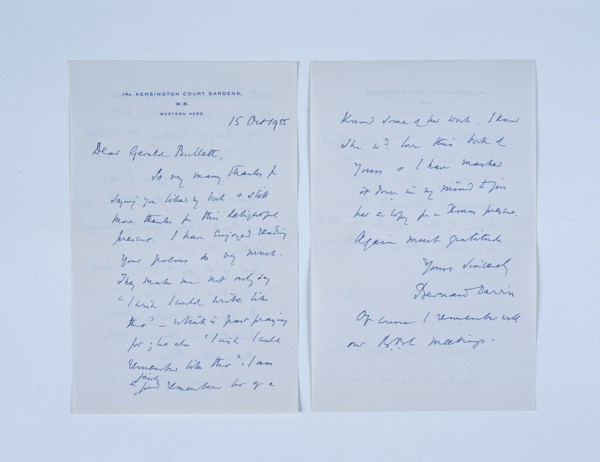 14A, KENSINGTON COURT GARDENS,
W.8.
WESTERN 4098.
15 Oct 1955
Dear Gerald Bullett,
So very many thanks for
saying you liked my book & still
more thanks for this delightful
present. I have enjoyed reading
your poems so very much.
They make me not only say
"I wish I could write like
this" – which is past praying
for; but also "I wish I could
remember like this". I am
a fairly good rememberer but of a
know some of her work. I know
she wd. love this book of
yours & I have marked
it down in my mind to give
her a copy for a Xmas present.
Again much gratitude
Yours sincerely
Bernard Darwin
Of course I remember well
our meetings.